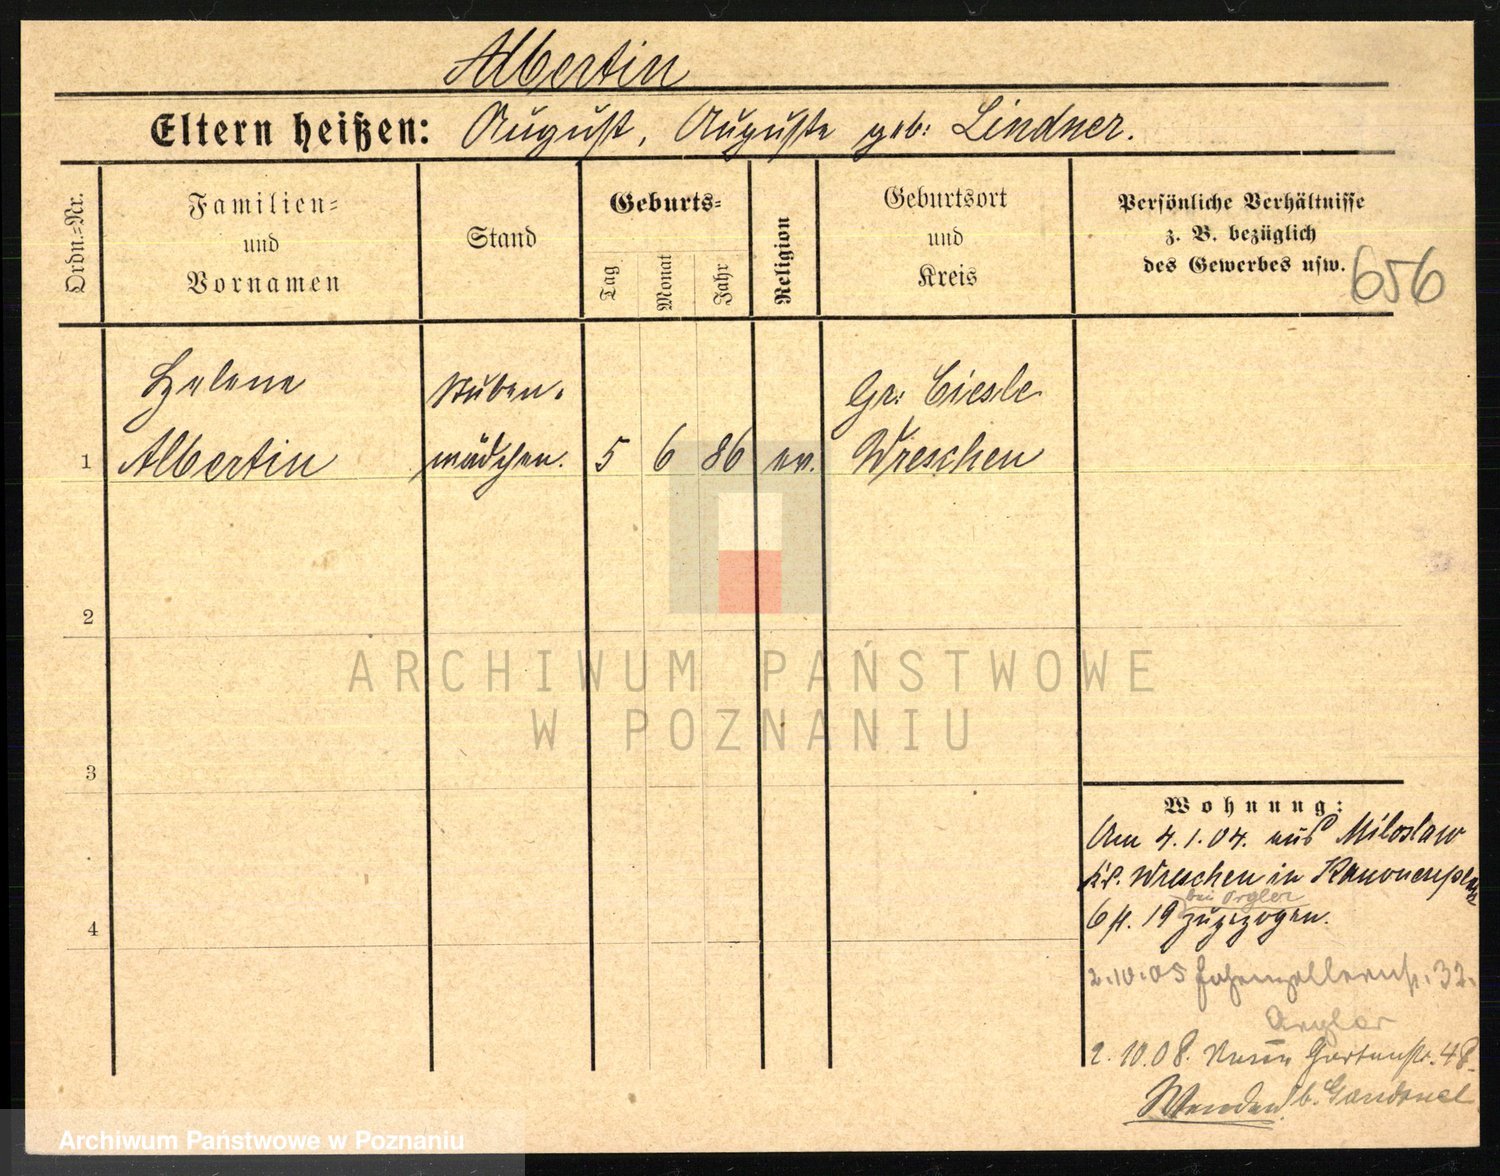 Albertin
Eltern heißen: August, Auguste geb: Lindner.
Ordn.=Nr.
Familien=
und
Vornamen
Stand
Geburts=
Tag
Monat
Jahr
Religion
Geburtsort
und
Kreis
Persönliche Verhältnisse
z. B. bezüglich
des Gewerbes usw.
656
Helene Stuben- Gr: Ciesle
1 Albertin mädchen. 5 6 86 ev. Wreschen
2
ARCHIWUM PAŃSTWOWE
W POZNANIU
3
Wohnung:
Am 4.1.04. aus Miloslaw
Kr. Wreschen in Kanonenplatz
bei Orgler
4
6 II. 19 zugezogen.
2.10.05 Hohenzollernstr. 32.
Orgler
2.10.08. Gartenstr. 48.
b.
Archiwum Państwowe w Poznaniu